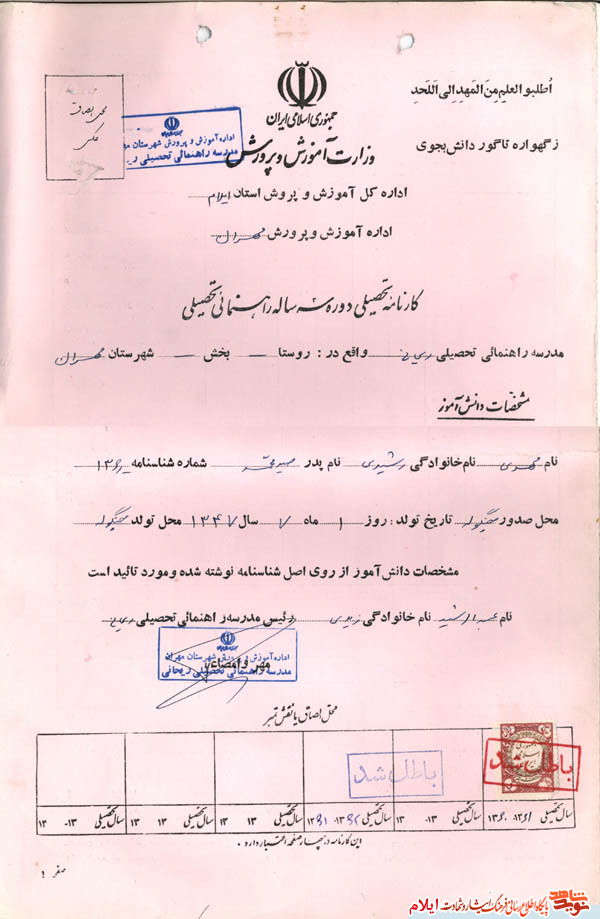 اُطلبو العلمِ مِنَ المَهدِ اِلی اللَحَدِ
زگهواره تاگور دانش بجوی
محل الصاق
عکس
جمهوری اسلامی ایران
وزارت آموزش و پرورش
اداره آموزش و پرورش شهرستان مهران
مدرسه راهنمائی تحصیلی
اداره کل آموزش و پروش استان ایلام
اداره آموزش و پرورش مهران
کارنامه تحصیلی دوره سه ساله راهنمائی تحصیلی
مدرسه راهنمائی تحصیلی ریحانی واقع در: روستا — بخش — شهرستان مهران
مشخصات دانش آموز
نام مهدی نام خانوادگی رشیدی نام پدر صیدمحمد شماره شناسنامه
محل صدور چنگوله تاریخ تولد: روز ۱ ماه ۷ سال ۱۳۴۷ محل تولد چنگوله
مشخصات دانش آموز از روی اصل شناسنامه نوشته شده و مورد تائید است
نام عبدالرشید نام خانوادگی زیدی رئیس مدرسه راهنمائی تحصیلی ریحانی
مهر و امضاء
اداره آموزش و پرورش شهرستان مهران
مدرسه راهنمائی تحصیلی ریحانی
محل الصاق یا نقش تمبر
باطل شد
باطل شد
سال تحصیلی ۱۳۶۱-۱۳۶۰
سال تحصیلی ۱۳-۱۳
سال تحصیلی ۱۳۸۲-۱۳۸۱
سال تحصیلی ۱۳ ۱۳
سال تحصیلی ۱۳-۱۳
سال تحصیلی ۱۳ ۱۳
این کارنامه در چهار صفحه اعتبار دارد.
صفحه ۱
نوید شاهد
پایگاه اطلاع رسانی فرهنگ ایثار و شهادت ایلام